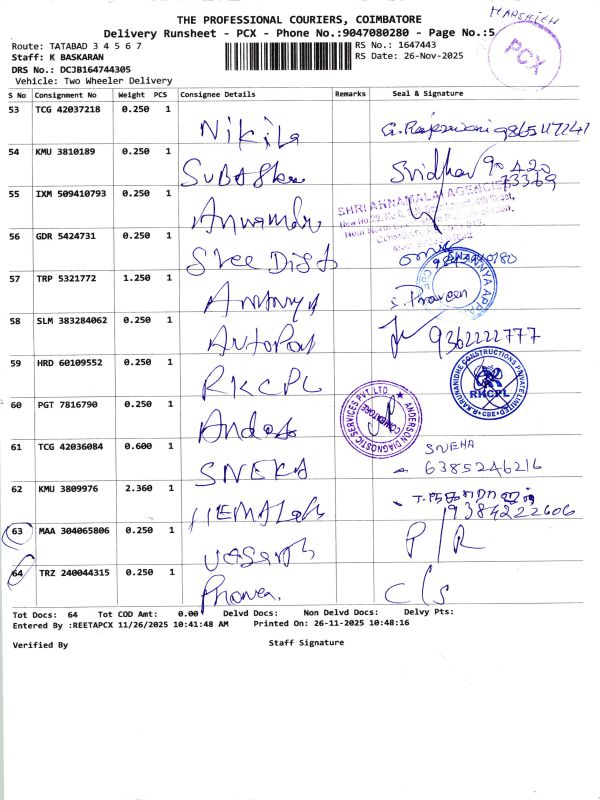 HARSHITH
THE PROFESSIONAL COURIERS, COIMBATORE
Delivery Runsheet - PCX - Phone No.:9047080280 - Page No.:5
PCX
Route: TATABAD 3 4 5 6 7
RS No.: 1647443
Staff: K BASKARAN
RS Date: 26-Nov-2025
DRS No.: DCJB164744305
Vehicle: Two Wheeler Delivery
S No Consignment No Weight PCS Consignee Details Remarks Seal & Signature
53 TCG 42037218 0.250 1
Nikila
54 KMU 3810189 0.250 1
Sridhar 90420
73369
55 IXM 509410793 0.250 1
SHRI ANNAMALAI AGENCIES
56 GDR 5424731 0.250 1
Sree Dist
57 TRP 5321772 1.250 1
Ananya
S. Praveen
ANANYA
58 SLM 383284062 0.250 1
9362222777
59 HRD 60109552 0.250 1
RKCPL
KARUNANIDHE CONSTRUCTIONS PRIVATE LIMITED
RKCPL
CBE
60 PGT 7816790 0.250 1
ANDERSON DIAGNOSTIC SERVICES PVT. LTD
COIMBATORE
61 TCG 42036084 0.600 1
SNEHA
SNEHA
6385246216
62 KMU 3809976 2.360 1
9384222606
63 MAA 304065806 0.250 1
P/R
64 TRZ 240044315 0.250 1
C/S
Tot Docs: 64 Tot COD Amt: 0.00 Delvd Docs: Non Delvd Docs: Delvy Pts:
Entered By :REETAPCX 11/26/2025 10:41:48 AM Printed On: 26-11-2025 10:48:16
Verified By Staff Signature